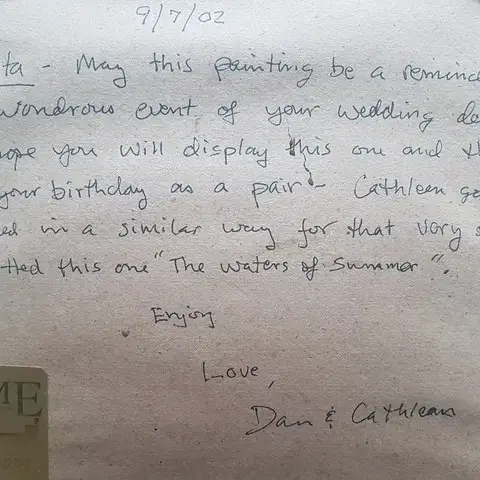 9/7/02
ta - May this painting be a remind
wondrous event of your wedding da
ope you will display this one and th
your birthday as a pair - Cathleen ge
ed in a similar way for that very s
tled this one "The waters of Summer".
Enjoy
Love,
Dan & Cathleen
ME